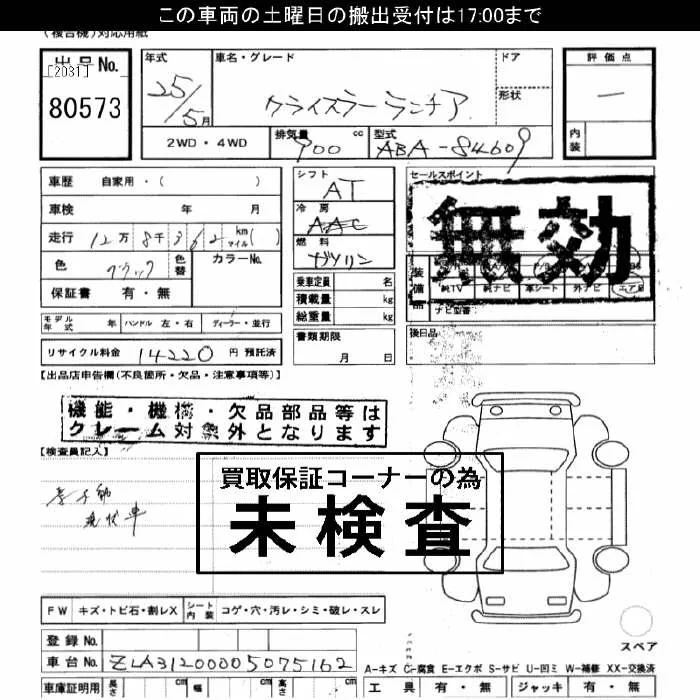 この車両の土曜日の搬出受付は17:00まで
(複合機)対応用紙
出品No.
[2031]
80573
年式
25/5月
車名・グレード
クライスラー ランチア
ドア
形状
評価点
ー
内装
2WD・4WD
排気量 900 cc
型式 ABA-84609
車歴 自家用・( )
車検 年 月
走行 12万8千362 km マイル( )
色 ブラック 色替
カラーNo.
保証書 有・無
シフト AT
冷房 AAC
燃料 ガソリン
乗車定員 名
積載量 kg
総重量 kg
セールスポイント
無効
装備品
純TV 純ナビ 革シート 外ナビ エアB
ナビ型番
モデル年式 年 ハンドル 左・右 ディーラー・並行
書類期限
月 日
後日品
リサイクル料金 14220 円 預託済
【出品店申告欄(不良箇所・欠品・注意事項等)】
機能・機構・欠品部品等は
クレーム対象外となります
【検査員記入】
現状車
買取保証コーナーの為
未検査
FW キズ・トビ石・割レX シート内装 コゲ・穴・汚レ・シミ・破レ・スレ
登録No.
車台No. ZLA31200005075162
スペア
A-キズ C-腐食 E-エクボ S-サビ U-凹ミ W-補修 XX-交換済
車庫証明用 長さ cm 幅 cm 高さ cm
工具 有・無 ジャッキ 有・無